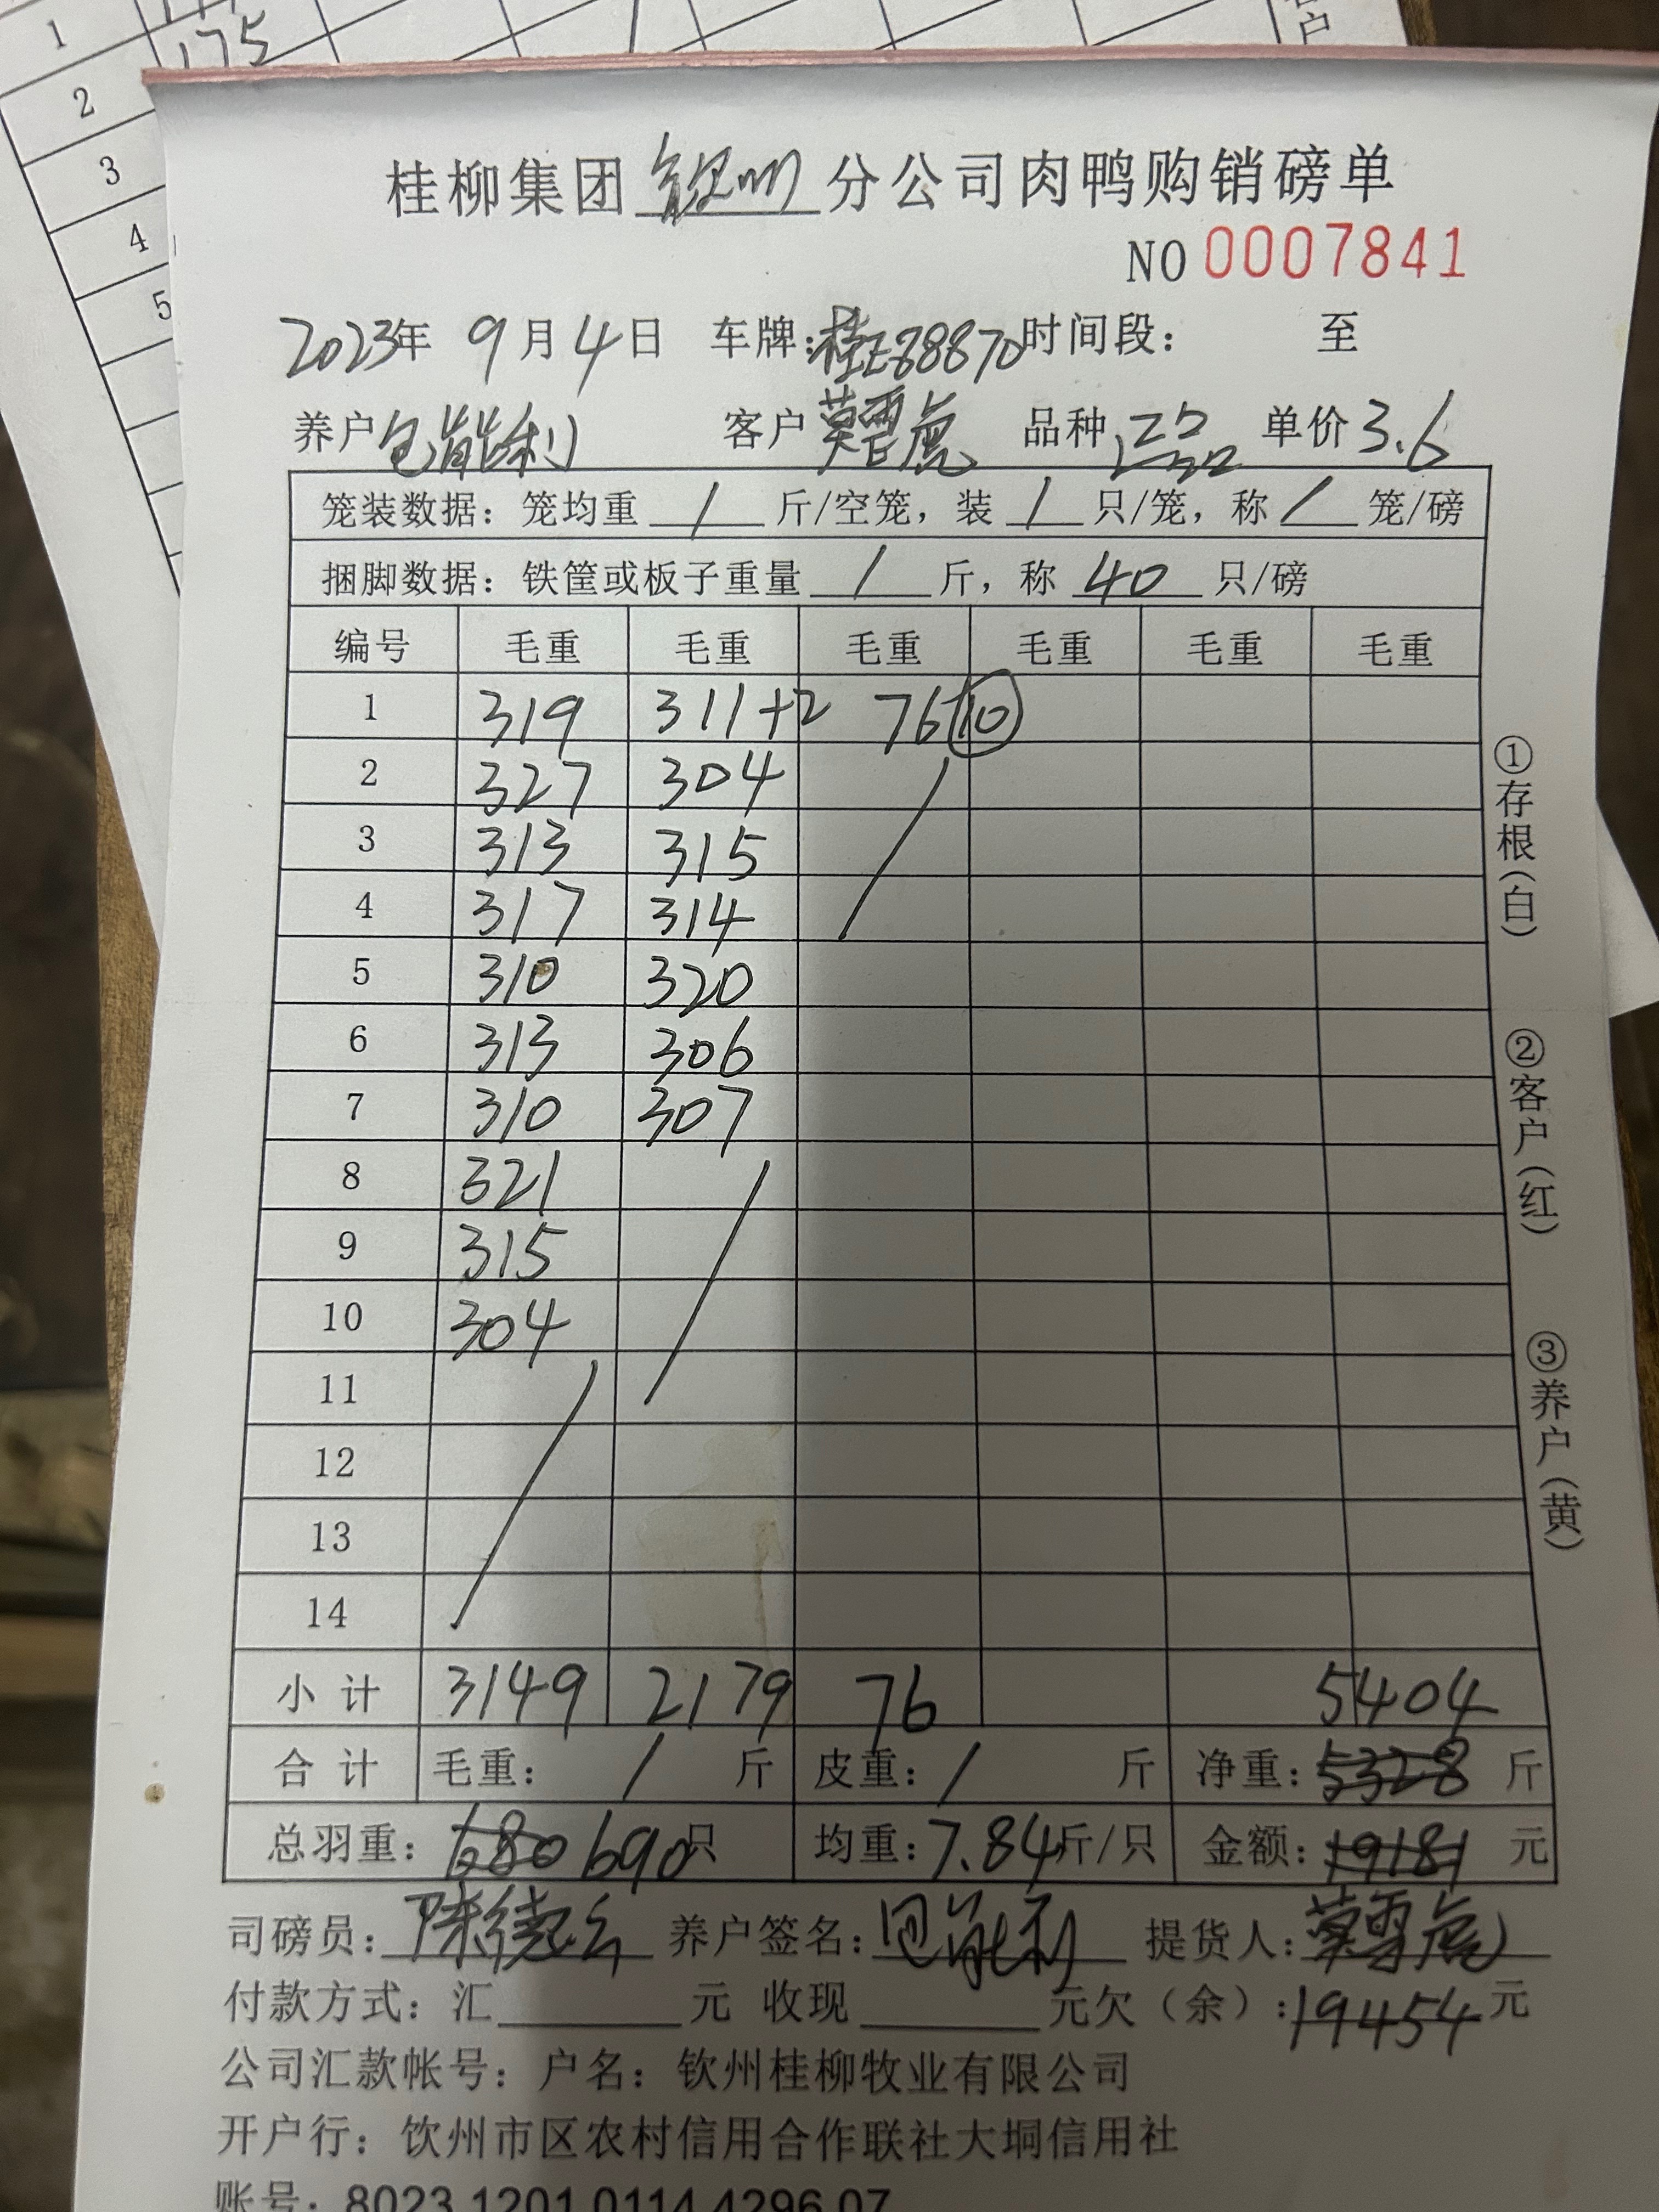 1 175
2
3
4
5
户
桂柳集团钦州分公司肉鸭购销磅单
NO 0007841
2023年 9月4日 车牌:桂E88870 时间段: 至
养户 包能利 客户 莫雪虎 品种 三品 单价3.6
笼装数据: 笼均重 / 斤/空笼, 装 / 只/笼, 称 / 笼/磅
捆脚数据: 铁筐或板子重量 / 斤, 称 40 只/磅
编号 毛重 毛重 毛重 毛重 毛重 毛重
1 319 311+2 76 10
2 327 304
3 313 315
4 317 314
5 310 320
6 313 306
7 310 307
8 321
9 315
10 304
11
12
13
14
小计 3149 2179 76 5404
合计 毛重: / 斤 皮重: / 斤 净重: 5328 斤
总羽重: 680 690只 均重:7.84斤/只 金额: 19181 元
司磅员: 陈德云 养户签名: 包能利 提货人: 莫雪虎
付款方式: 汇 元 收现 元欠(余):19454元
公司汇款帐号: 户名: 钦州桂柳牧业有限公司
开户行: 钦州市区农村信用合作联社大垌信用社
账号: 8023 1201 0114 4296 07
①存根(白)
②客户(红)
③养户(黄)